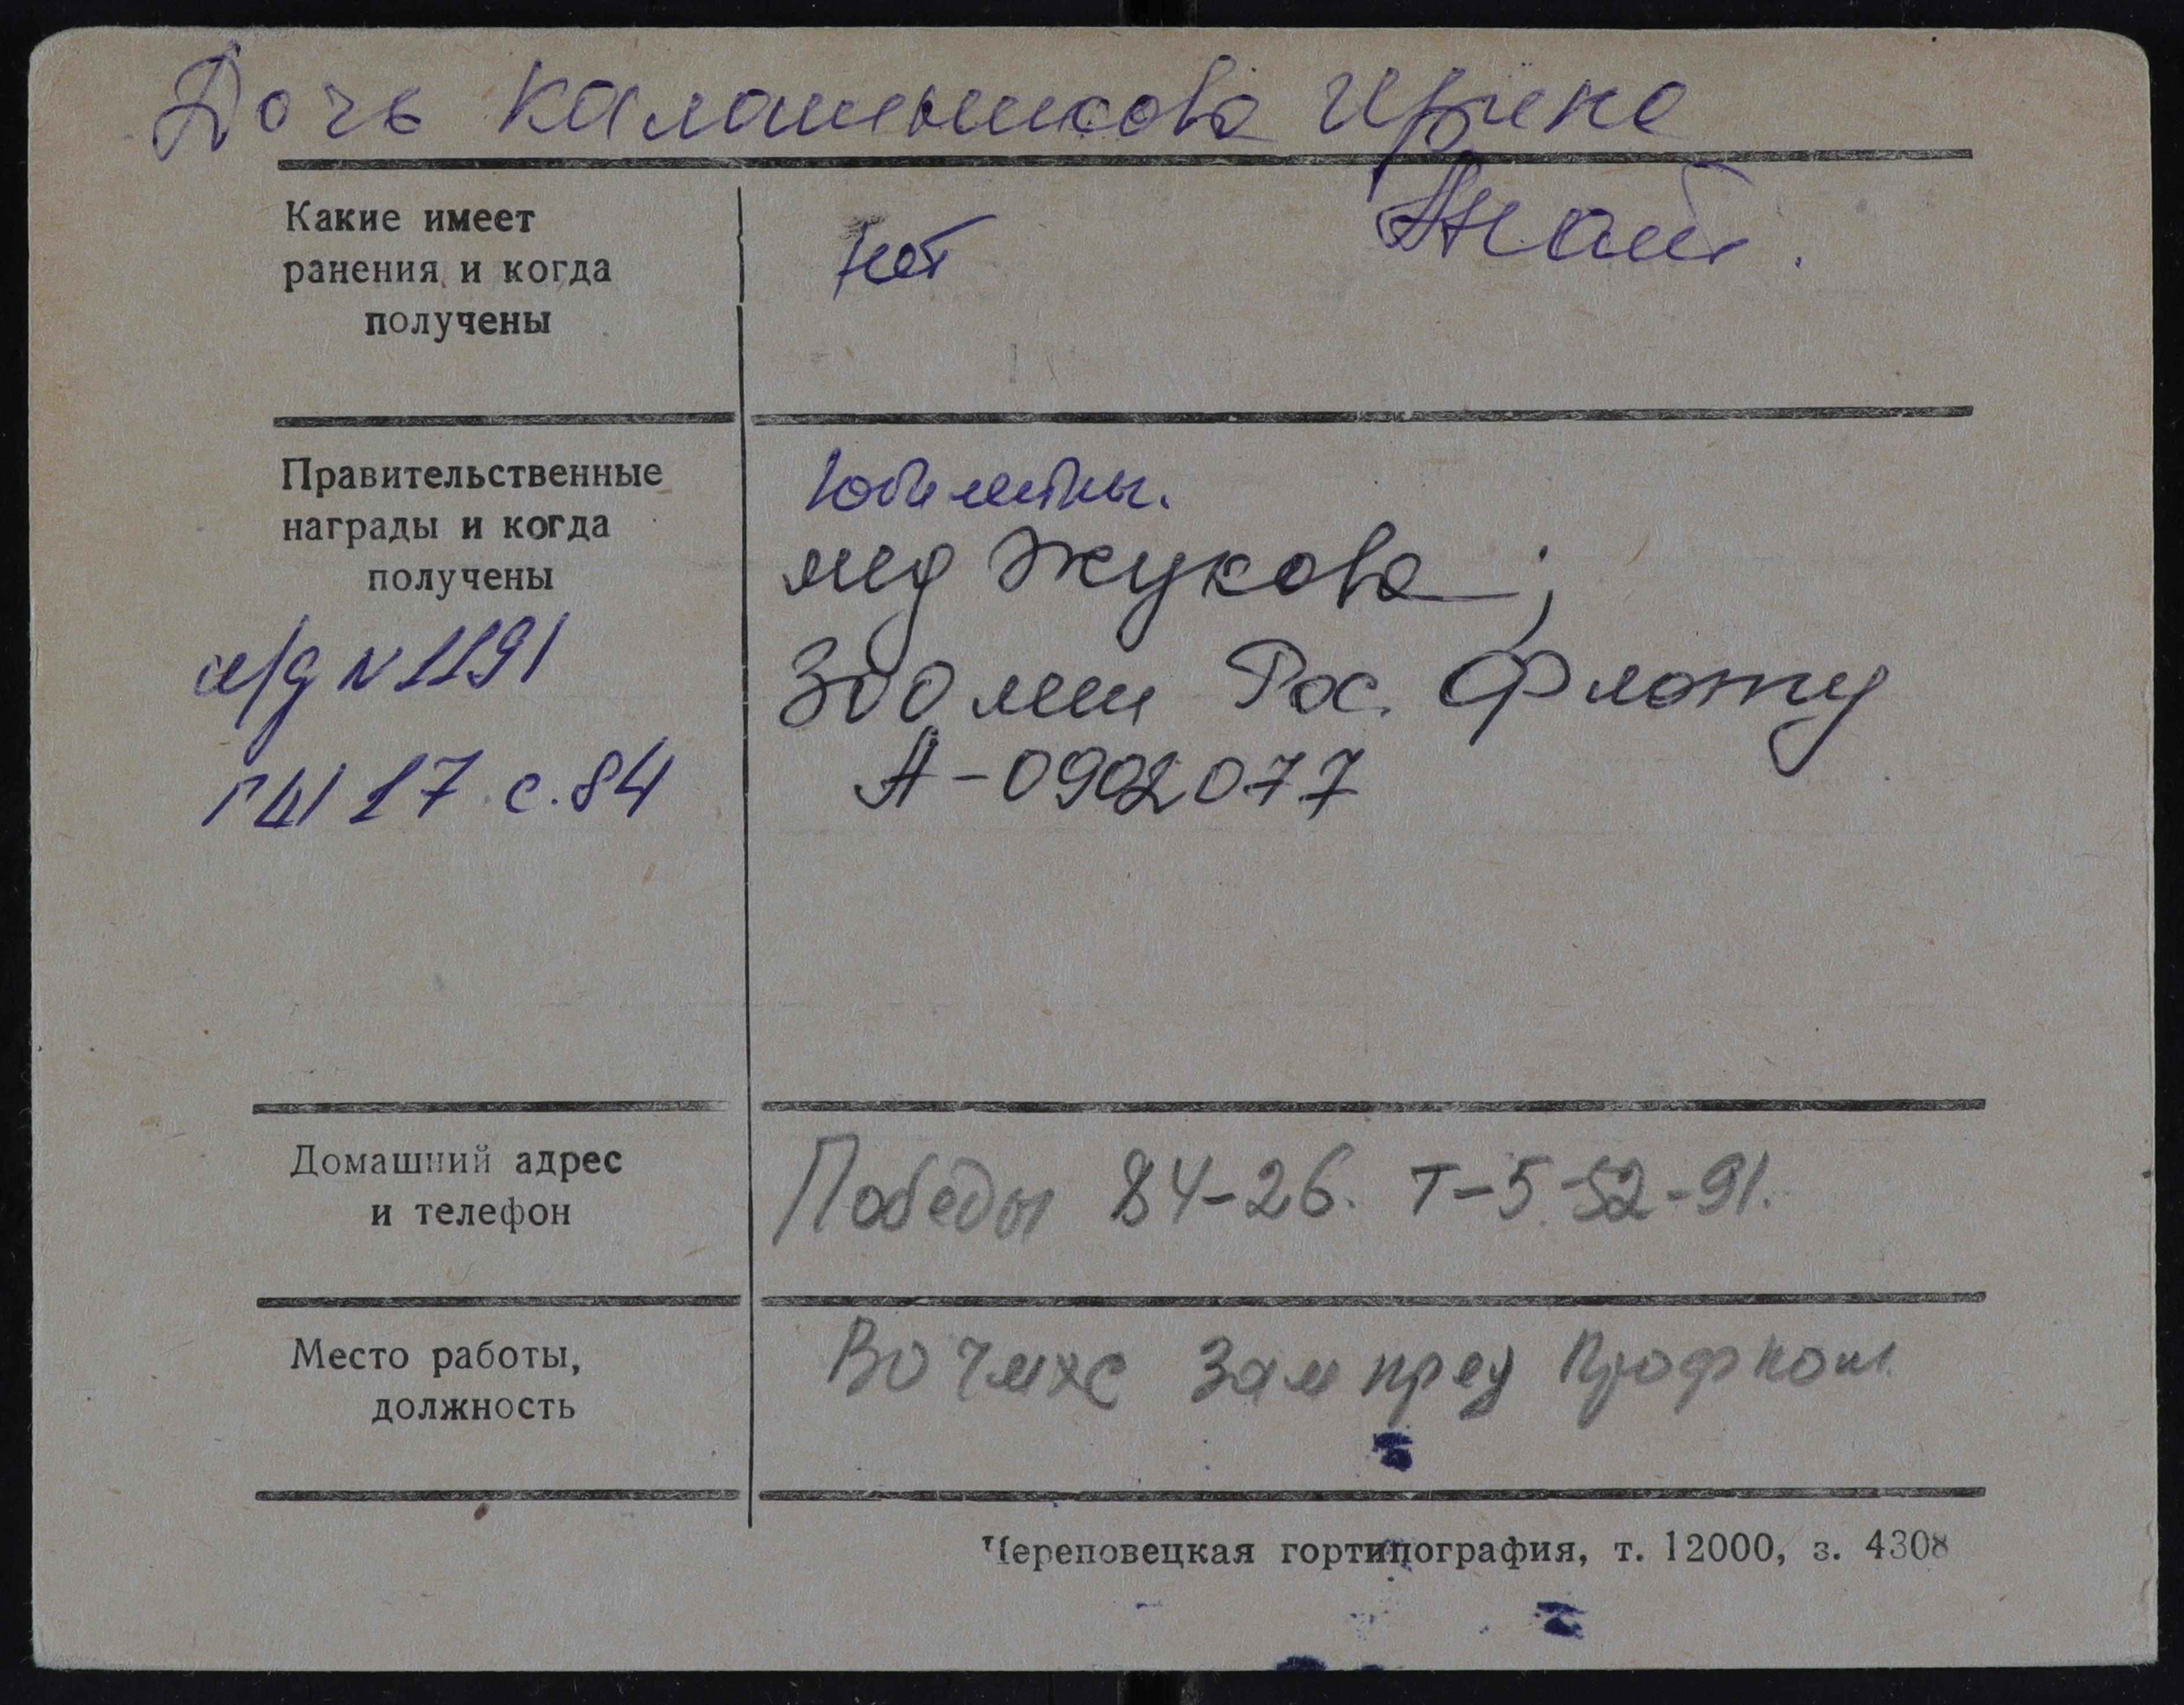 Дочь Калашникова Ирина
Анат.
Какие имеет
ранения и когда
получены
нет
Правительственные
награды и когда
получены
л/д N 1191
юбилейны.
мед Жукова;
300 лет Рос. Флоту
А-0902077
17 с. 84
Домашний адрес
и телефон
Победы 84-26. Т-5-52-91.
Место работы,
должность
Зам пред Профком.
Череповецкая гортипография, т. 12000, з. 4308